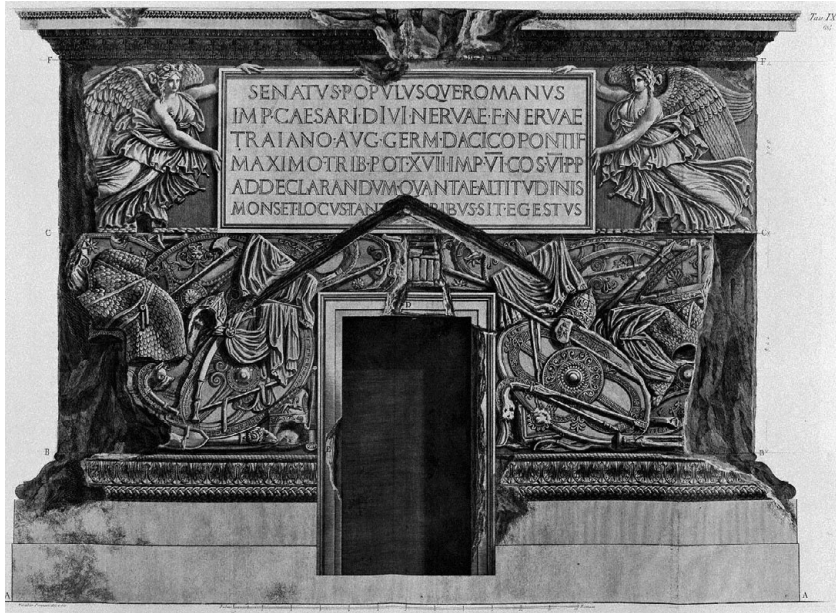 Tav. IX
F
F
SENATVS·POPVLVSQVEROMANVS
IMP·CAESARI·DIVI·NERVAE·F·NERVAE
TRAIANO·AVG·GERM·DACICO PONTIF
MAXIMO·TRIB·POT·XVII·IMP·VI·COS·VI·PP
ADDECLARANDVM·QVANTAE·ALTITVDINIS
MONSETLOCVSTAN RIBVSSIT·EGESTVS
C
C
D
B
B
A
A